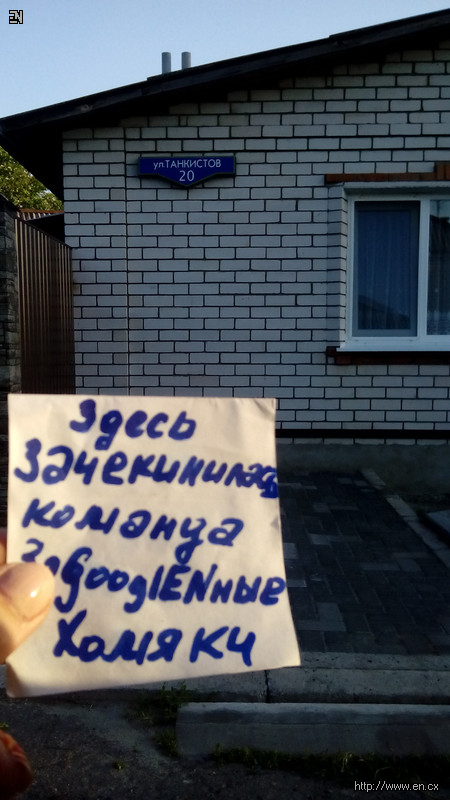 EN
ул.ТАНКИСТОВ
20
Здесь
Зачекинилась
команда
ЗаGooglENные
Хомяки
http://www.en.cx